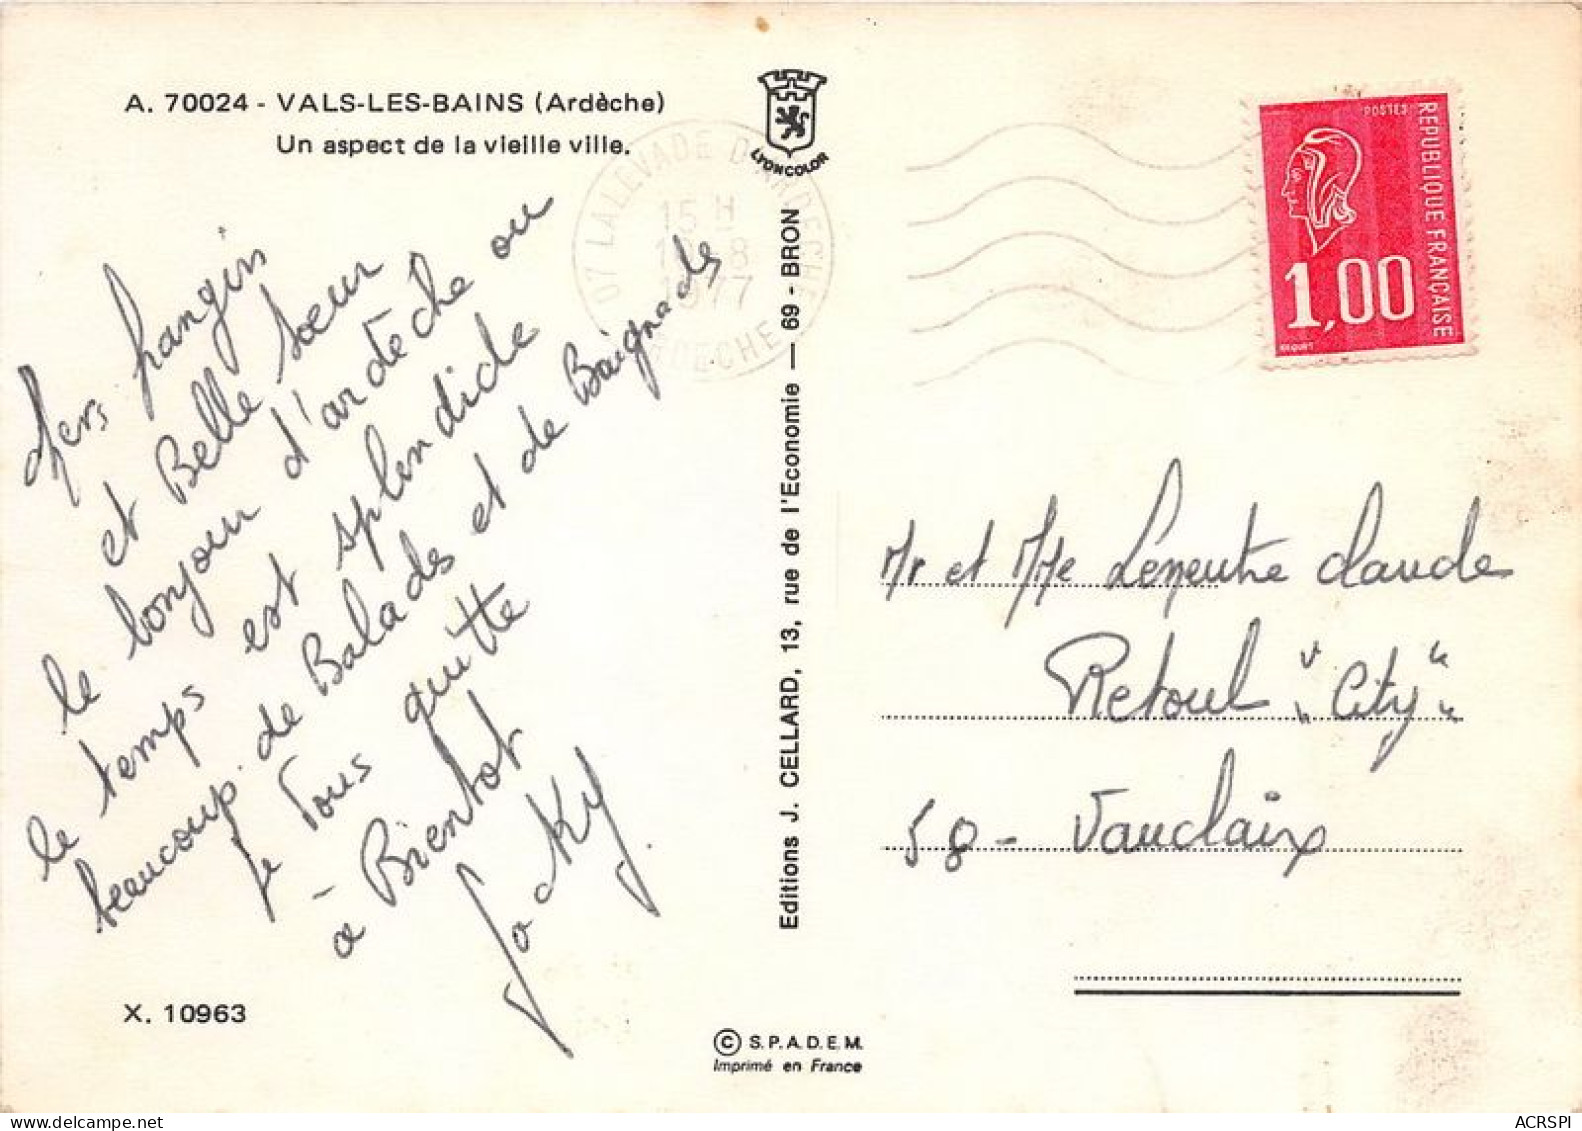 A. 70024 - VALS-LES-BAINS (Ardèche)
Un aspect de la vieille ville.
LYONCOLOR
07 LALEVADE D'ARDECHE
15 H
1977
ARDECHE
POSTES
REPUBLIQUE FRANÇAISE
1,00
BEQUET
frangin
et Belle sœur
le bonjour d'ardèche ou
le temps est splendide
beaucoup de Balades et de Baignades
je vous quitte
à Bientot
Jacky
Editions J. CELLARD, 13, rue de l'Economie — 69 - BRON
Mr et Mme Claude
Retoul "City"
58 - Vauclaix
X. 10963
© S.P.A.D.E.M.
Imprimé en France
ACRSPI